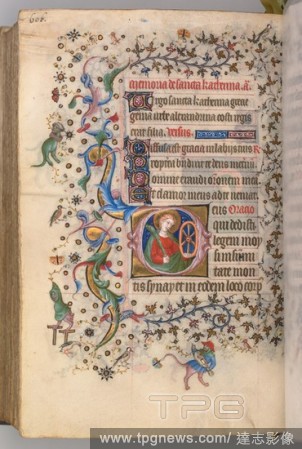 608.
memoria de sancta katherina. a.
Virgo sancta katherina grecie
gemma urbe alexandrina costi regis
erat filia. Versus.
Diffusa est gracia in labiis tuis R
propterea benedixit te deus in eternum
Domine exaudi orationem meam
Et clamor meus ad te veniat
Oracio
qui dedisti
legem moy
si in sum
tate mon
tis synay et in eodem loco corp
TPG
www.tpgnews.com / 達志影像